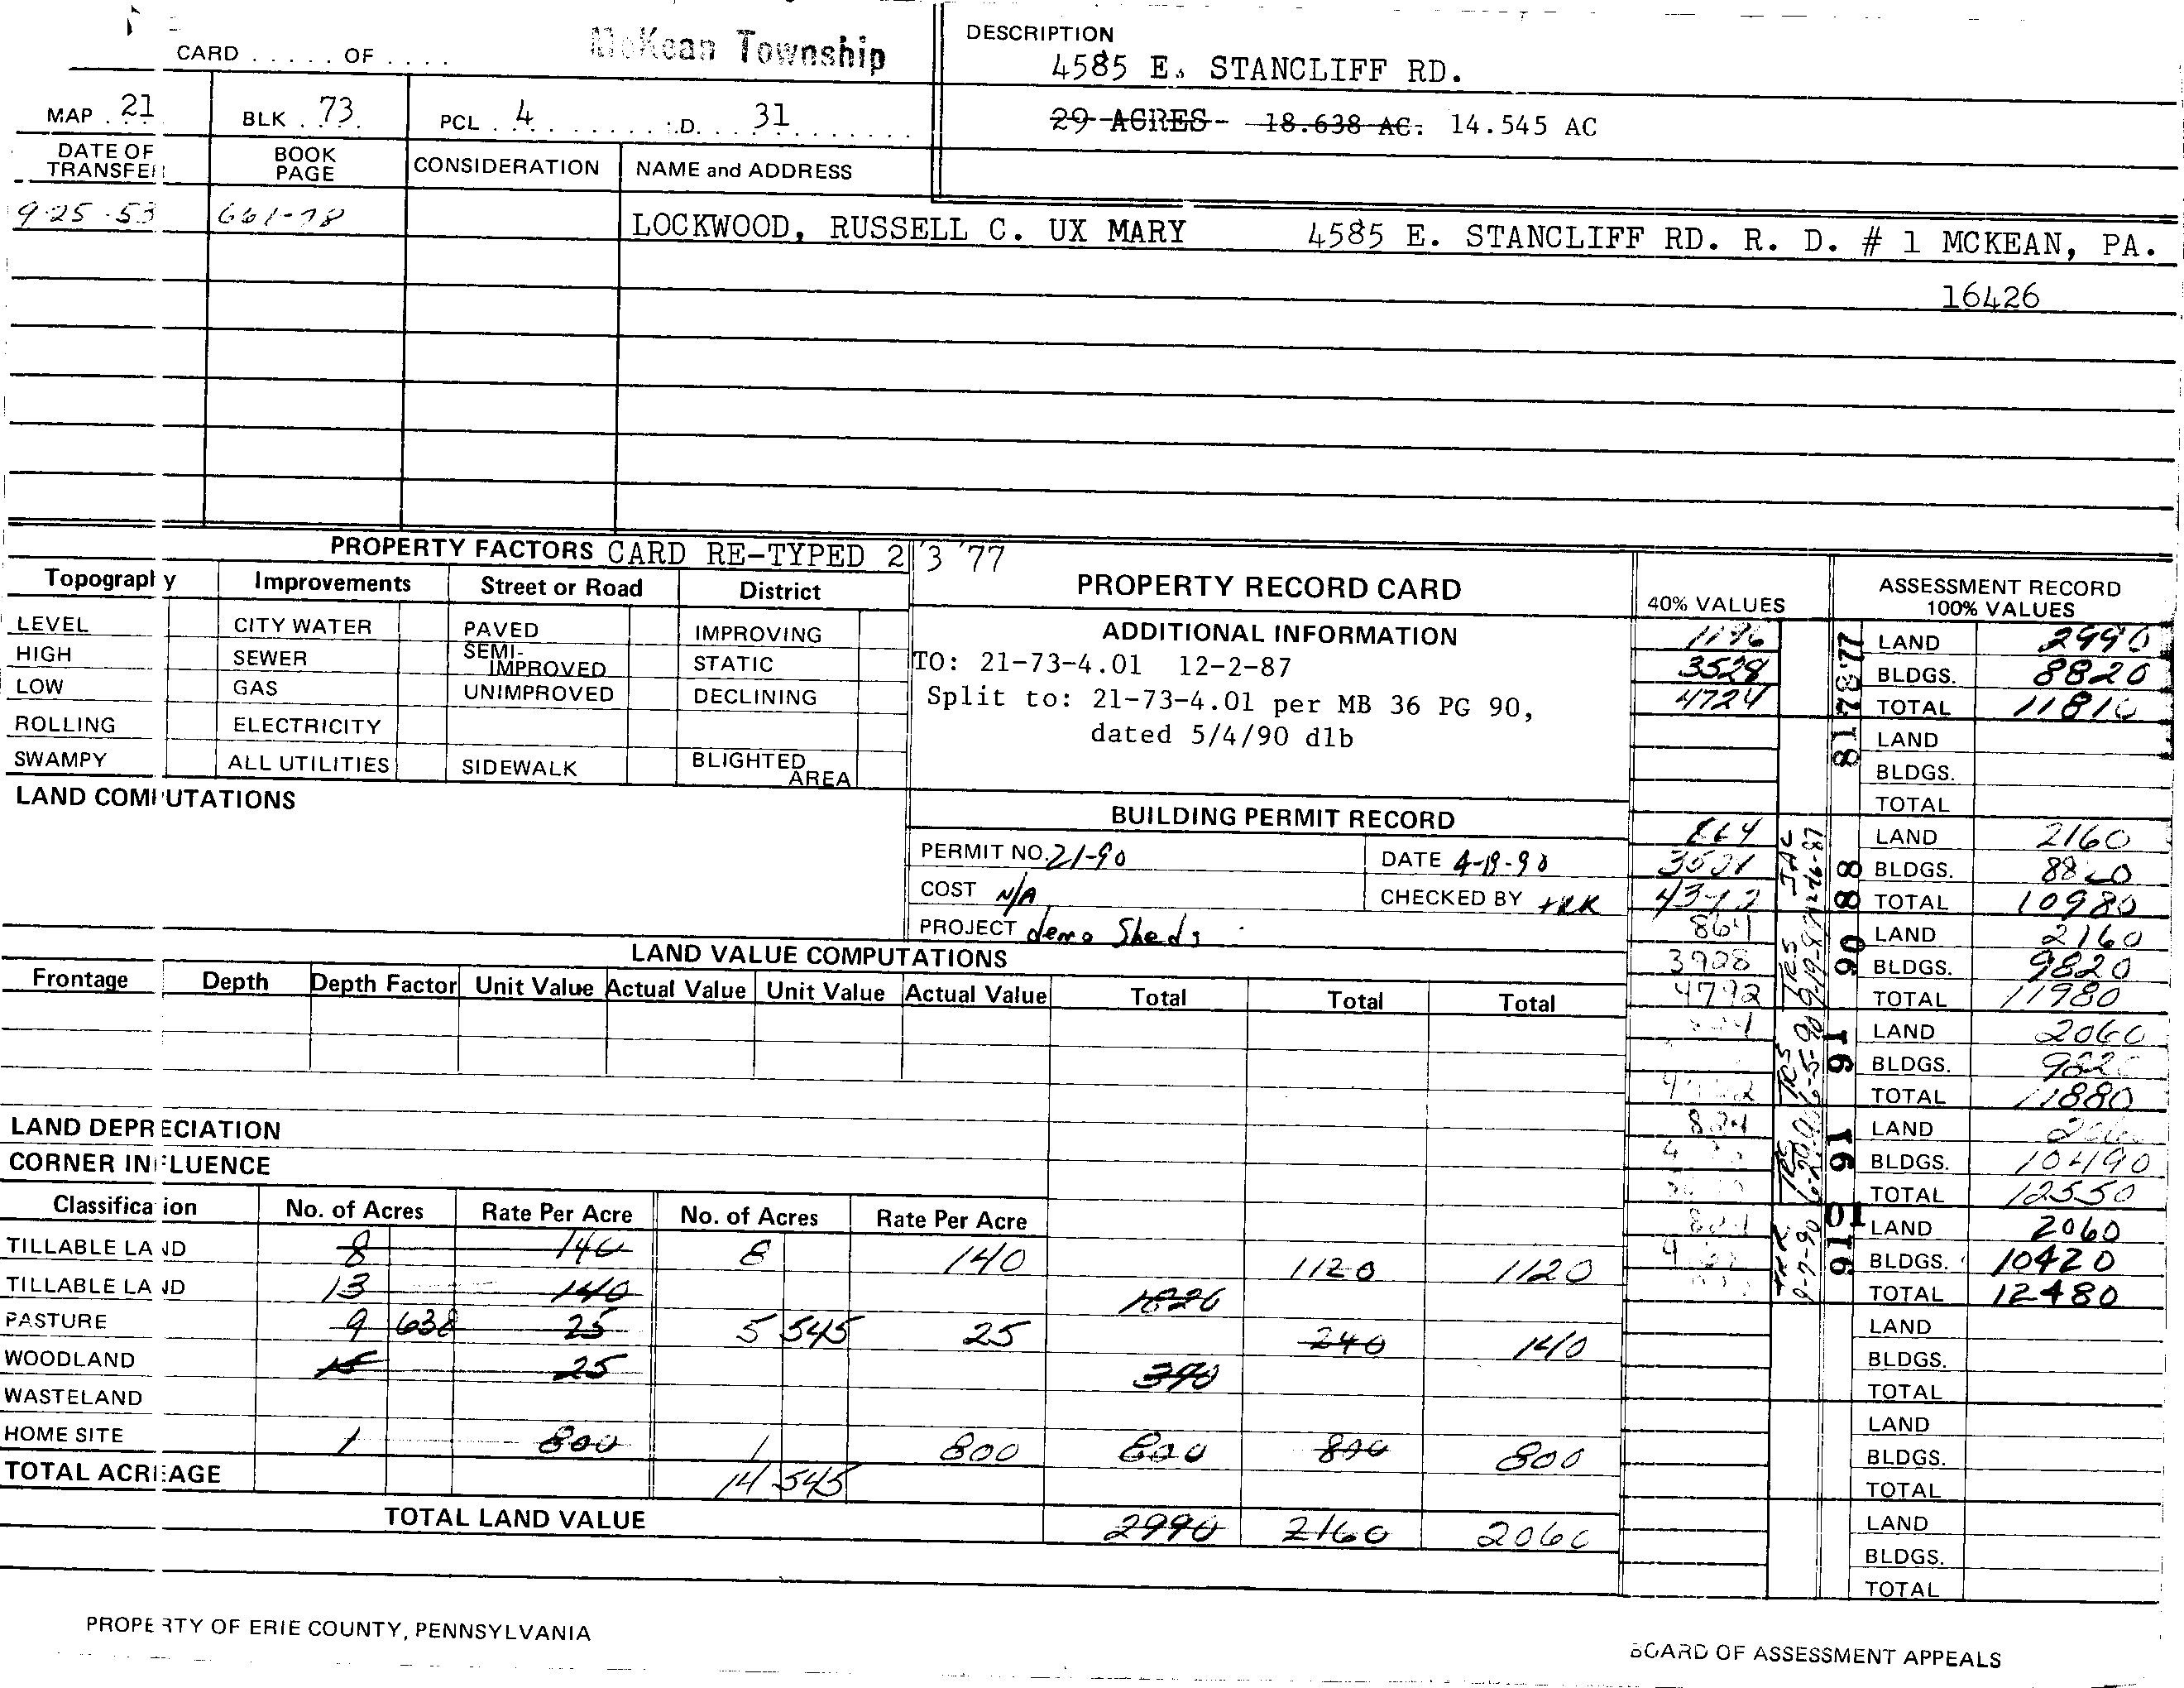 McKean Township
CARD . . . . . OF . . . .
DESCRIPTION
4585 E. STANCLIFF RD.
29 ACRES - 18.638 AC. 14.545 AC
MAP . 21 BLK . 73 PCL . 4 . . . . . . . I.D. . . . 31 . . . . . . .
DATE OF TRANSFER BOOK PAGE CONSIDERATION NAME and ADDRESS
9-25-53 661-78 LOCKWOOD, RUSSELL C. UX MARY 4585 E. STANCLIFF RD. R. D. # 1 MCKEAN, PA.
16426
PROPERTY FACTORS CARD RE-TYPED 2 '3 '77
Topography Improvements Street or Road District
LEVEL CITY WATER PAVED IMPROVING
HIGH SEWER SEMI-IMPROVED STATIC
LOW GAS UNIMPROVED DECLINING
ROLLING ELECTRICITY
SWAMPY ALL UTILITIES SIDEWALK BLIGHTED AREA
LAND COMPUTATIONS
PROPERTY RECORD CARD
ADDITIONAL INFORMATION
TO: 21-73-4.01 12-2-87
Split to: 21-73-4.01 per MB 36 PG 90,
dated 5/4/90 dlb
BUILDING PERMIT RECORD
PERMIT NO. 21-90 DATE 4-19-90
COST N/A CHECKED BY
PROJECT demo Sheds
LAND VALUE COMPUTATIONS
Frontage Depth Depth Factor Unit Value Actual Value Unit Value Actual Value Total Total Total
LAND DEPRECIATION
CORNER INFLUENCE
Classification No. of Acres Rate Per Acre No. of Acres Rate Per Acre
TILLABLE LAND 8 140 8 140 1120 1120
TILLABLE LAND 13 140 1820
PASTURE 9 638 25 5 545 25 240 140
WOODLAND 15 25 390
WASTELAND
HOME SITE 1 800 1 800 800 800 800
TOTAL ACREAGE 14 545
TOTAL LAND VALUE 2990 2160 2060
40% VALUES ASSESSMENT RECORD 100% VALUES
1196 LAND 2990
3528 BLDGS. 8820
4724 TOTAL 11810
LAND
BLDGS.
TOTAL
864 LAND 2160
BLDGS. 8820
TOTAL 10980
864 90 LAND 2160
3928 BLDGS. 9820
4792 TOTAL 11980
91 LAND 2060
BLDGS. 9820
TOTAL 11880
824 91 LAND 2060
BLDGS. 10490
TOTAL 12550
LAND 2060
BLDGS. 10420
TOTAL 12480
LAND
BLDGS.
TOTAL
LAND
BLDGS.
TOTAL
LAND
BLDGS.
TOTAL
PROPERTY OF ERIE COUNTY, PENNSYLVANIA
BOARD OF ASSESSMENT APPEALS